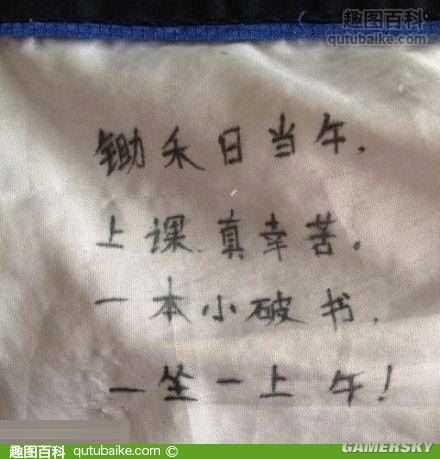 趣图百科
qutubaike.com
锄禾日当午，
上课真幸苦。
一本小破书，
一坐一上午！
趣图百科 qutubaike.com ©
GAMERSKY